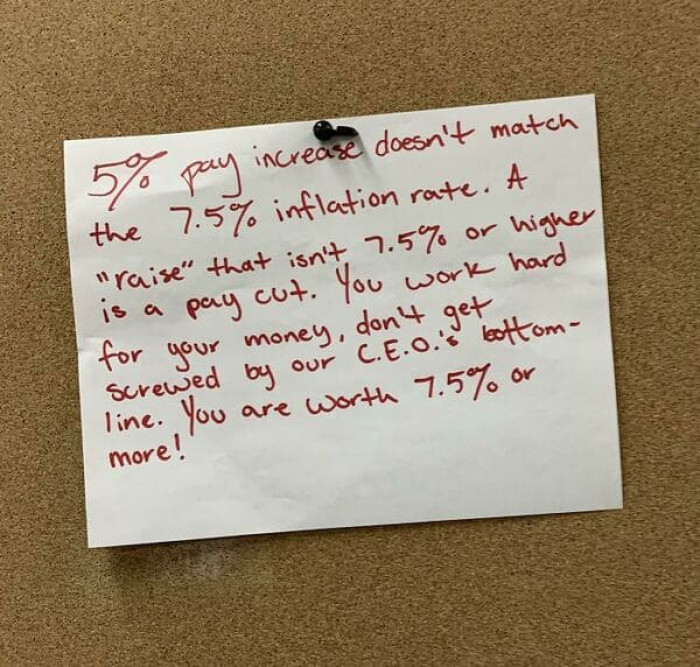 5% pay increase doesn't match
the 7.5% inflation rate. A
"raise" that isn't 7.5% or higher
is a pay cut. You work hard
for your money, don't get
screwed by our C.E.O.'s bottom-
line. You are worth 7.5% or
more!